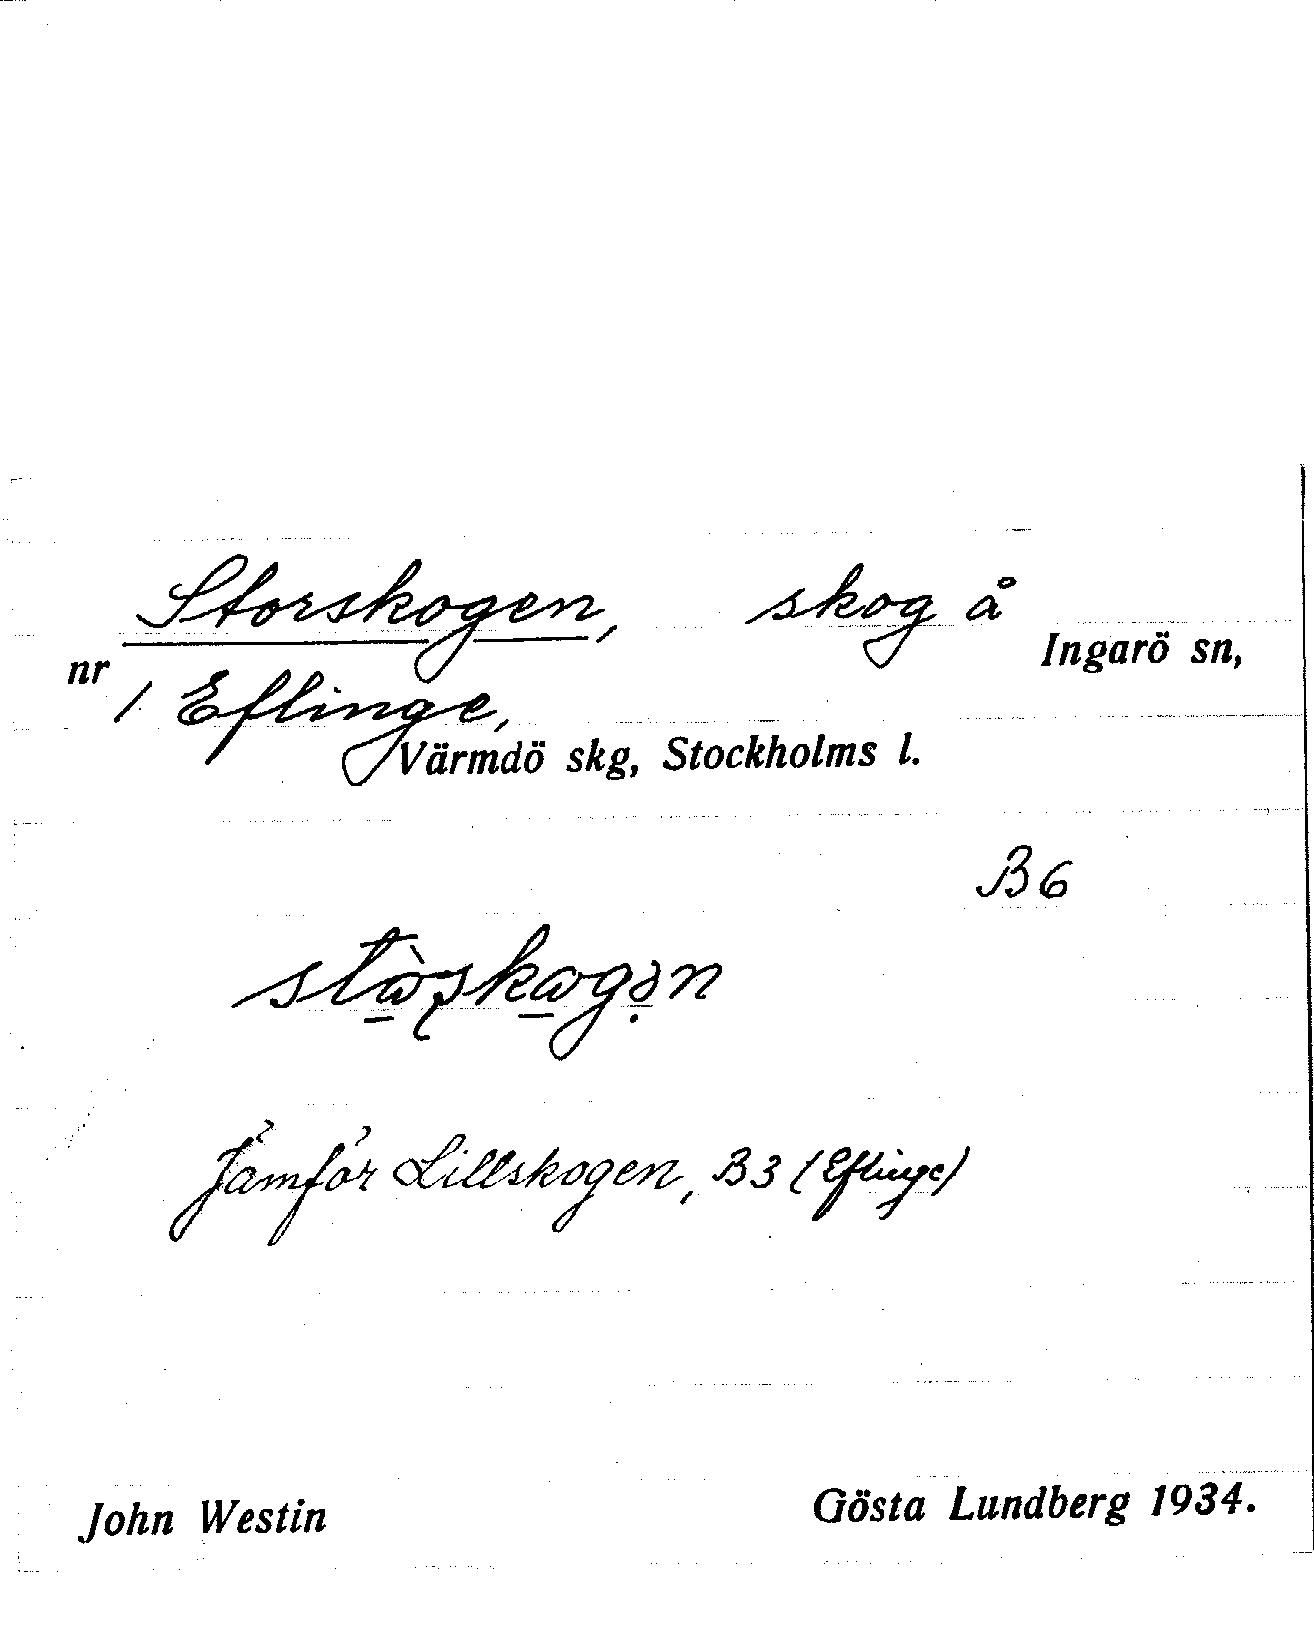 Storskogen, skog å
nr 1 Eflinge, Ingarö sn,
Värmdö skg, Stockholms l.
B6
Jämför Lillskogen, B3 (Eflinge)
John Westin Gösta Lundberg 1934.